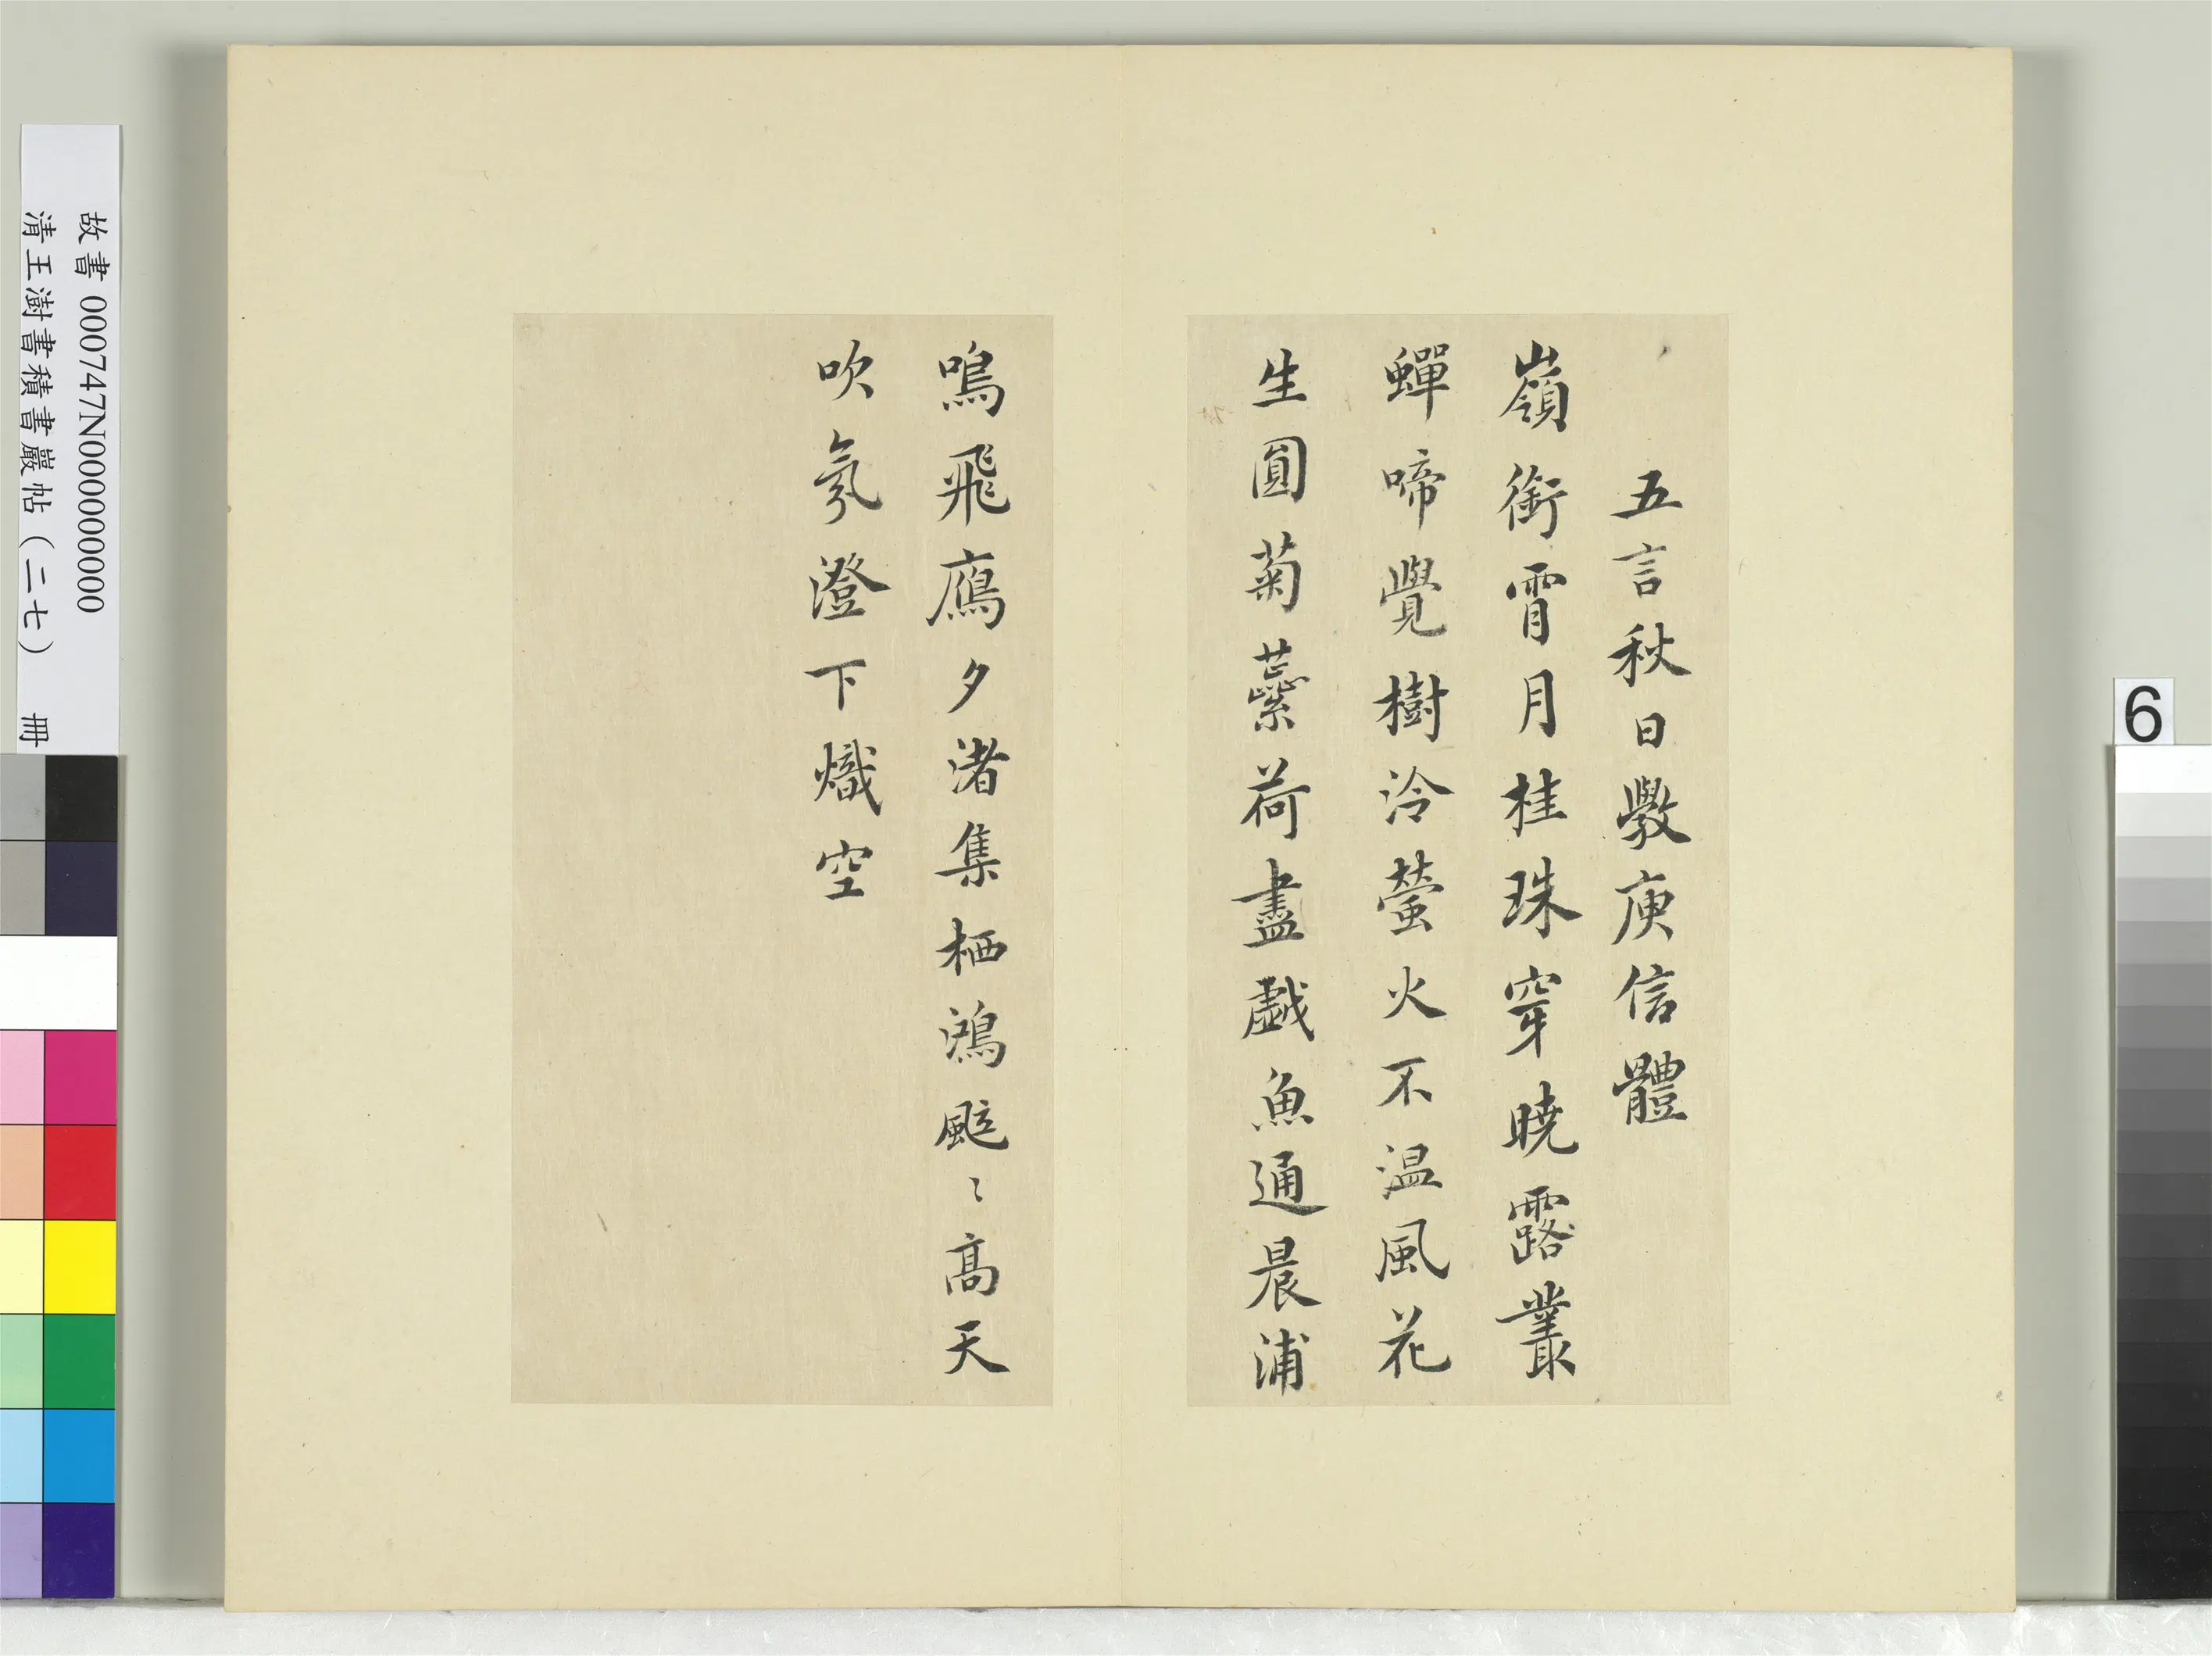 五言秋日斆庾信體
嶺銜霄月桂珠穿曉露叢
蟬啼覺樹泠螢火不温風花
生圓菊蘂荷盡戯魚通晨浦
鳴飛鴈夕渚集栖鴻颭〻高天
吹氛澄下熾空
故書 000747N000000000
清王澍書積書巖帖(二七) 冊
6